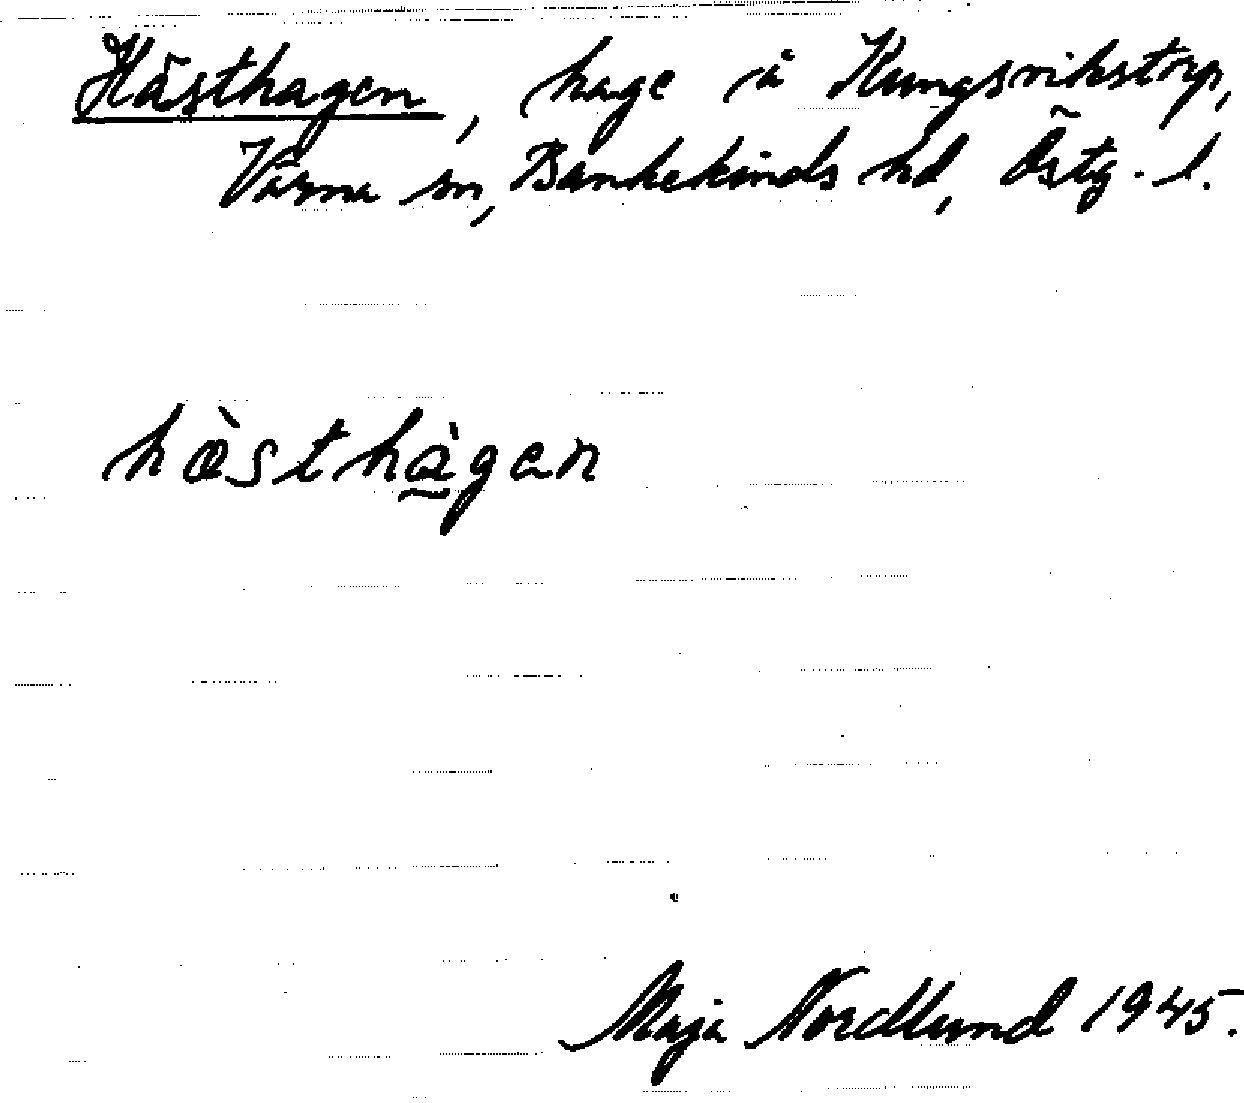 Hästhagen, hage å Kungsvikstorp,
Värna sn, Bankekinds hd, Östg. l.
hæ̀sthàgen
Maja Nordlund 1945.